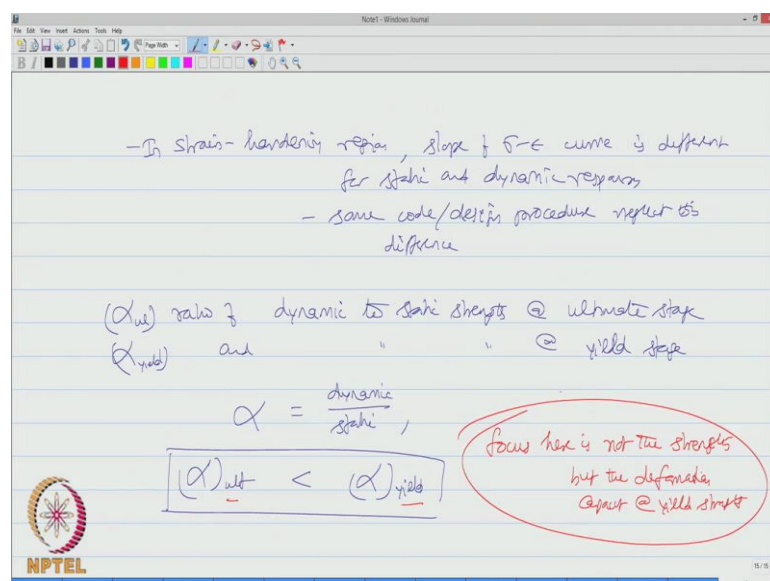 Note1 - Windows Journal
File Edit View Insert Actions Tools Help
Page Width
B I
- In strain-hardening region, slope of σ-ε curve is different
for static and dynamic response
- some code/design procedure neglect this
difference
(αult) ratio of dynamic to static strength @ ultimate stage
(αyield) and " " @ yield stage
α = dynamic/static,
(α)ult < (α)yield
focus here is not the strength
but the deformation
capacity @ yield strength
NPTEL
15/15